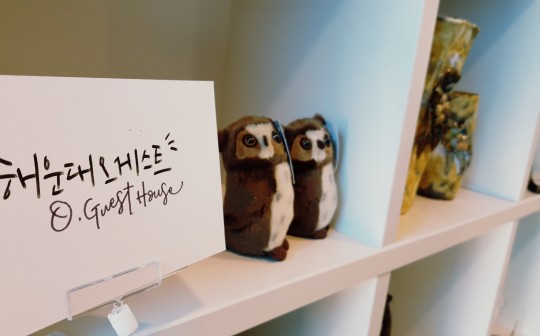 해운대 오게스트
O. Guest House